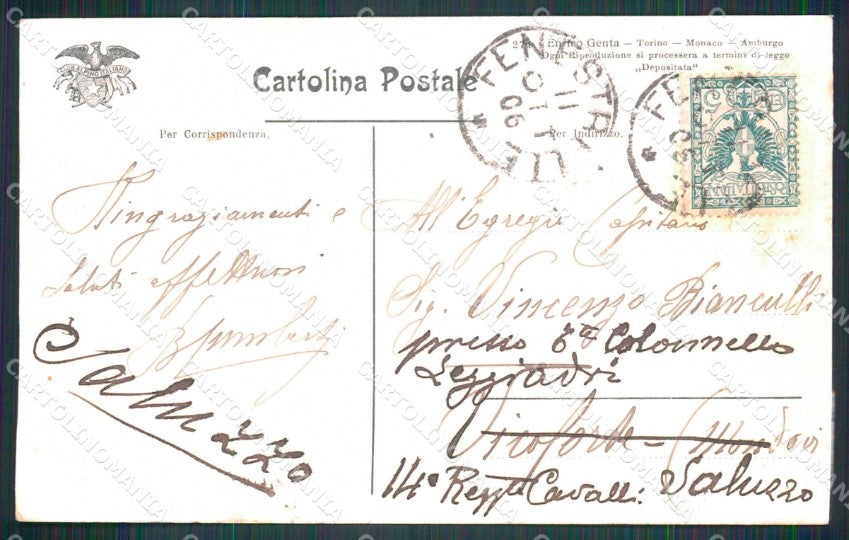 CLUB ALPINO ITALIANO
Cartolina Postale
Enrico Genta — Torino — Monaco — Amburgo
Ogni Riproduzione si processera a termini di legge
„Depositata"
FENESTRELLE
11 OTT 06
Per Corrispondenza.
Per Indirizzo.
Ringraziamenti e
saluti affettuosi
Saluzzo
All'Egregio Capitano
Sig. Vincenzo Bianculli
presso Colonnello
Leggiadri
Vicoforte - (Mondovi
14º Reggto Cavalli: Saluzzo
CARTOLINOMANIA